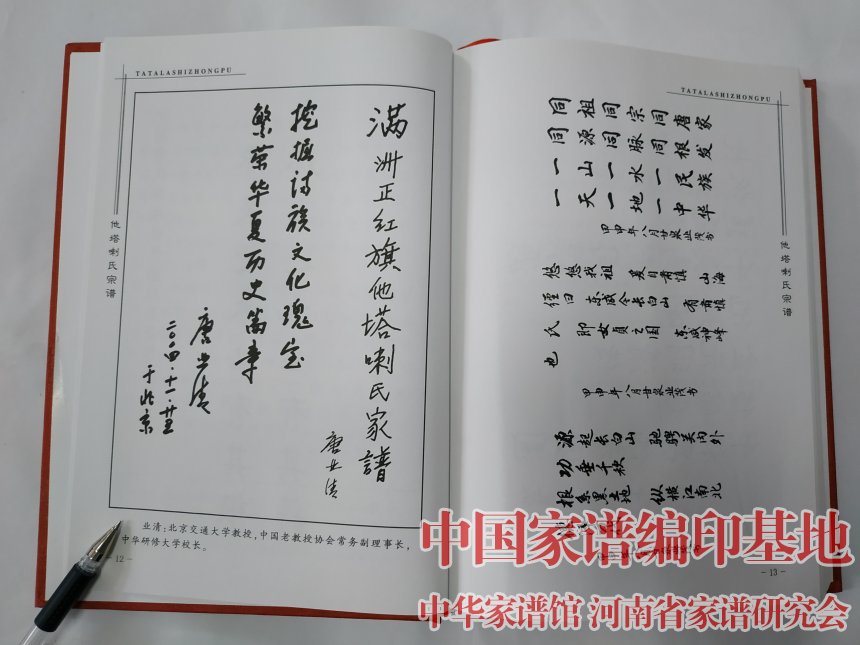 TATALASHIZHONGPU
他塔喇氏宗谱
满洲正红旗他塔喇氏家譜
唐业清
挖掘族文化瑰宝
繁荣华夏历史篇章
唐业清
二〇〇四·十一·廿五
于北京
业清:北京交通大学教授,中国老教授协会常务副理事长,
中华研修大学校长。
- 12 -
TATALASHIZHONGPU
他塔喇氏宗谱
同祖同宗同唐家
同源同脉同根发
一山一水一民族
一天一地一中华
甲申年八月甘泉业茂书
悠悠我祖 爰自肃慎 山海
长白山 有肃慎
氏 即女真之国 神峰
也
甲申年八月甘泉业茂书
源起长白山 驰骋关内外
功垂千秋
根系黑土地 纵横江南北
- 13 -
中国家谱编印基地
中华家谱馆 河南省家谱研究会